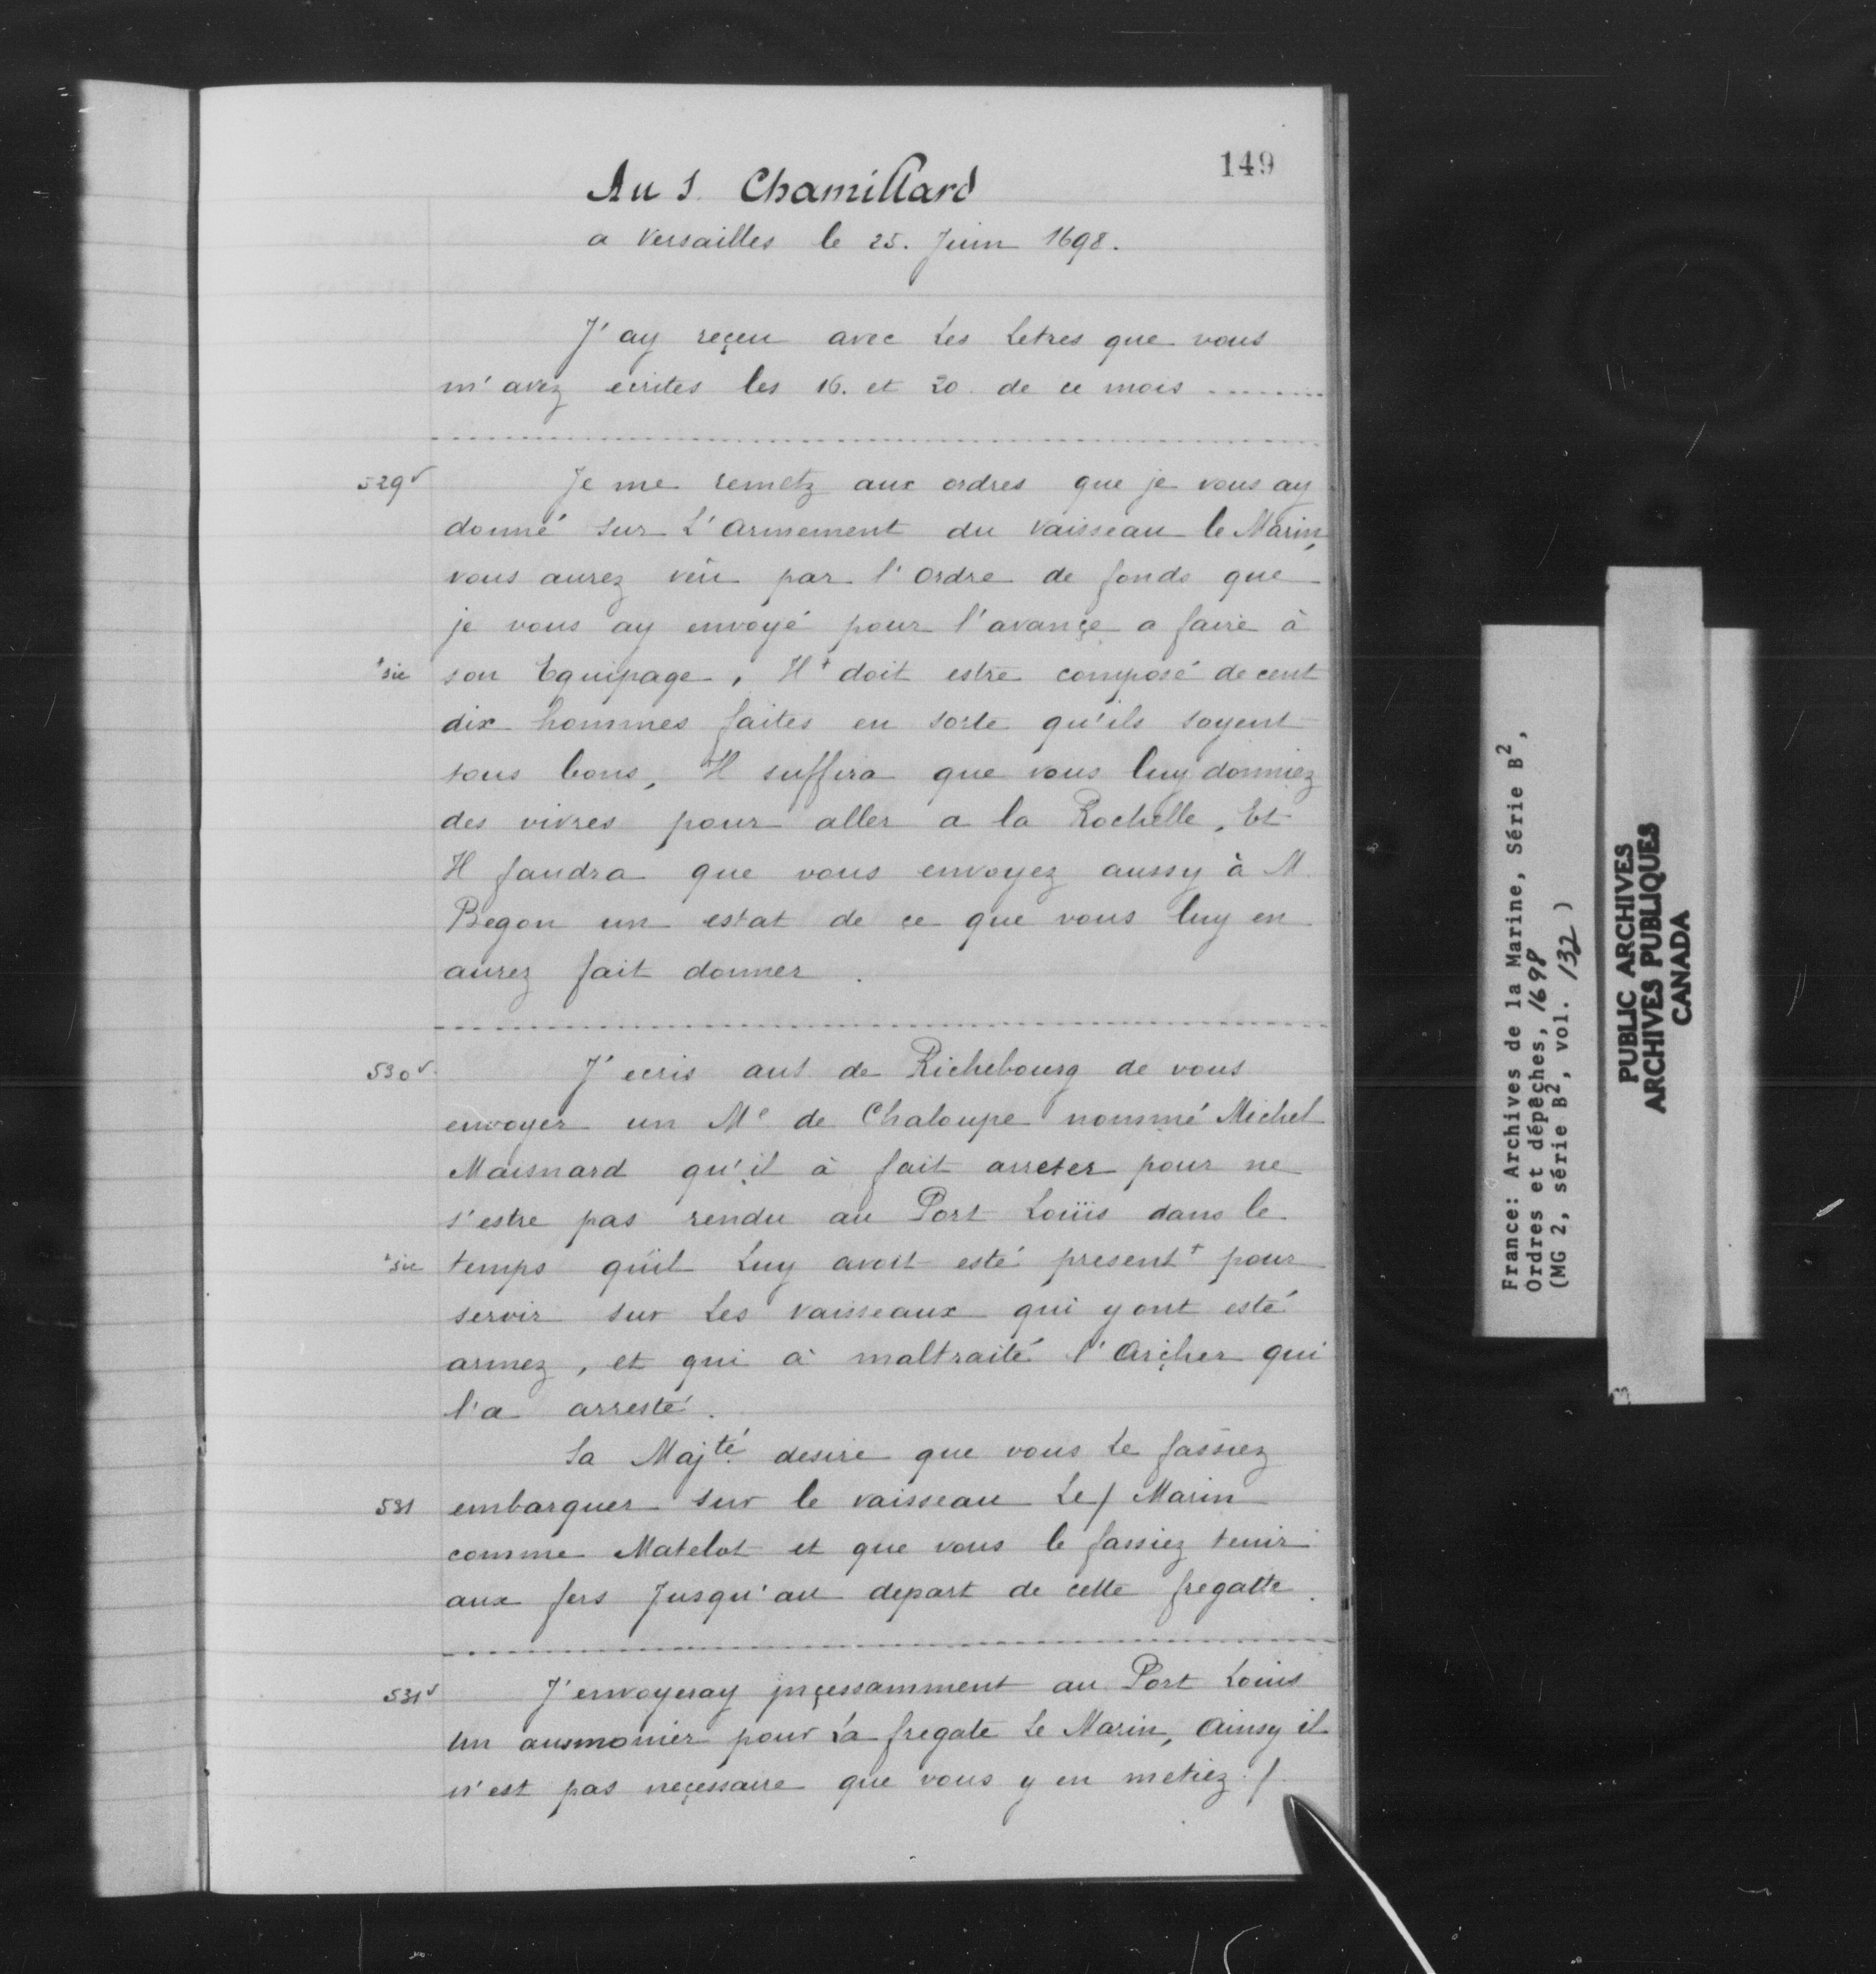 149
Au S. Chamillard
a Versailles le 25. Juin 1698.
J'ay reçeu avec Les Letres que vous
m'avez ecrites les 16. et 20. de ce mois ........
529v Je me remetz aux ordres que je vous ay
donné sur L'armement du vaisseau le Marin,
vous aurez vêu par l'ordre de fonds que
je vous ay envoyé pour l'avançe a faire à
+sic son Equipage, Il+ doit estre composé de cent
dix hommes faites en sorte qu'ils soyent
tous bons, Il suffira que vous luy donniez
des vivres pour aller a la Rochelle, Et
Il faudra que vous envoyez aussy à M.
Begon un estat de ce que vous luy en
aurez fait donner.
530v J'ecris au S. de Richebourg de vous
envoyer un Me de Chaloupe nommé Michel
Maisnard qu'il à fait arreter pour ne
s'estre pas rendu au Port Loüis dans le
+sic temps qüil Luy avoit esté present+ pour
servir sur Les vaisseaux qui y ont esté
armez, et qui à maltraité l'Archer qui
l'a arresté.
Sa Majté. desire que vous Le fassiez
531 embarquer sur le vaisseau Le/ Marin
comme Matelot et que vous le fassiez tenir
aux fers Jusqu'au depart de cette fregatte.
531v J'envoyeray inçessamment au Port Louis
Un aumonier pour La fregate Le Marin, Ainsy il
n'est pas neçessaire que vous y en metiez./.
France: Archives de la Marine, Série B2,
Ordres et dépêches, 1698
(MG 2, série B2, vol. 132)
PUBLIC ARCHIVES
ARCHIVES PUBLIQUES
CANADA